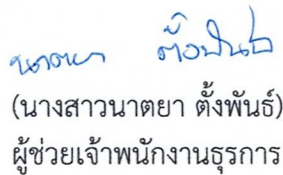 นาตยา ตั้งพันธ์
(นางสาวนาตยา ตั้งพันธ์)
ผู้ช่วยเจ้าพนักงานธุรการ